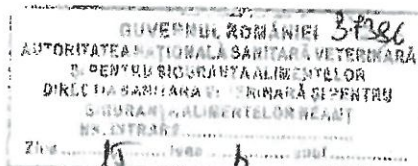 GUVERNUL ROMÂNIEI 37386
AUTORITATEA NAŢIONALĂ SANITARĂ VETERINARĂ
ŞI PENTRU SIGURANŢA ALIMENTELOR
DIRECŢIA SANITARĂ VETERINARĂ ŞI PENTRU
SIGURANŢA ALIMENTELOR NEAMŢ
NR. INTRARE
Ziua 15 luna anul